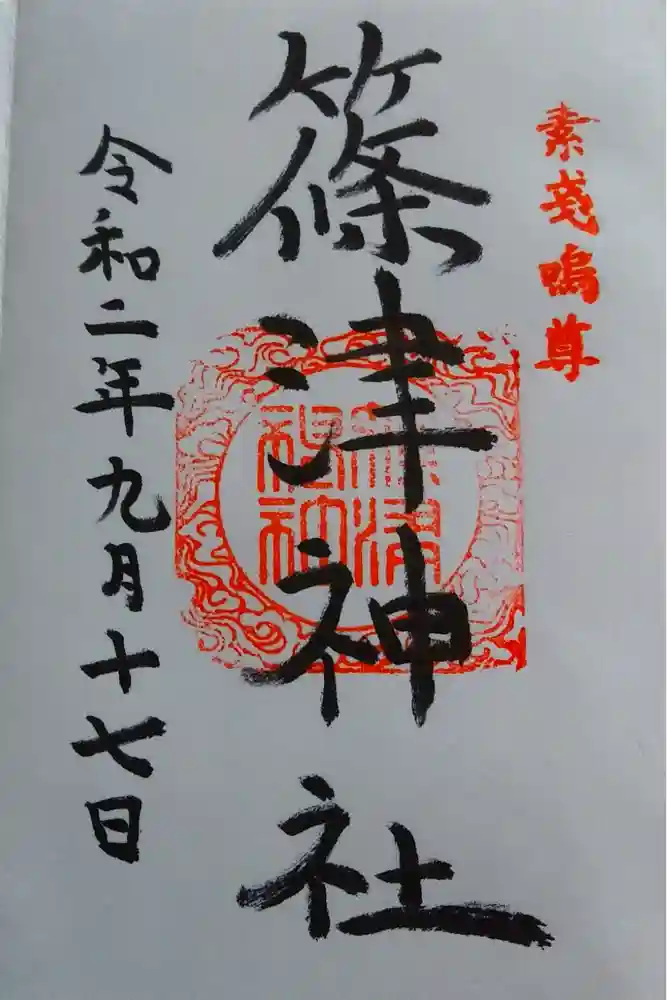 素戔嗚尊
篠津神社
令和二年九月十七日